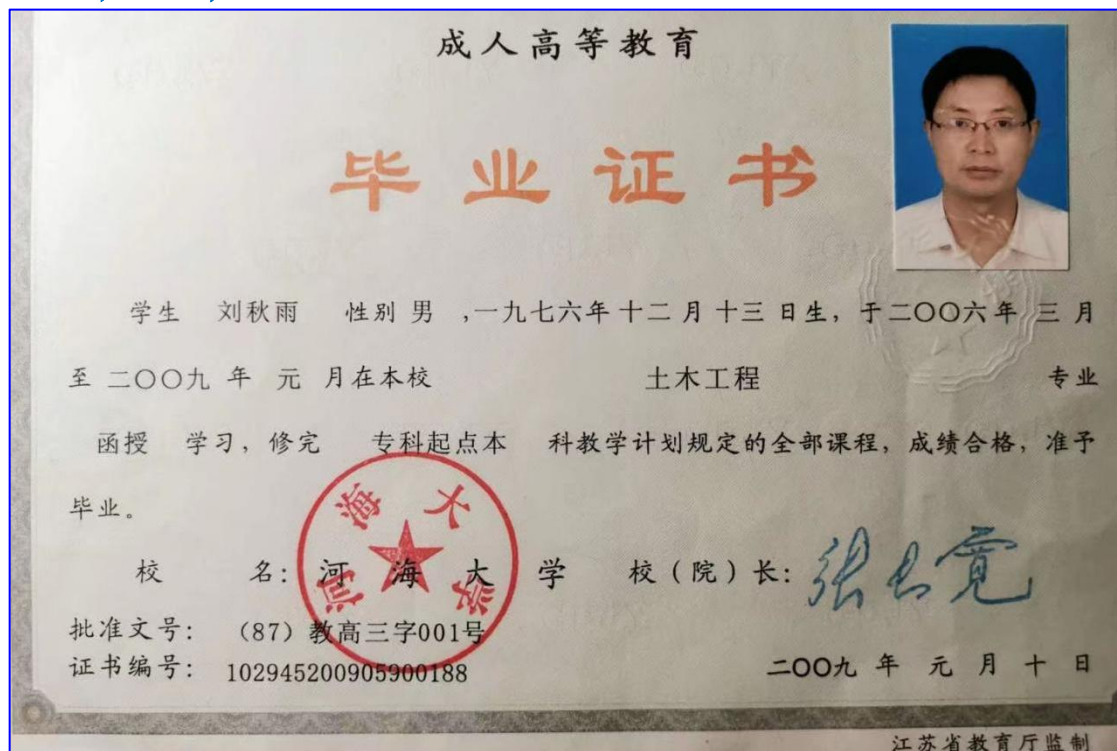 成人高等教育
毕业证书
学生 刘秋雨 性别 男 ,一九七六年 十二 月 十三 日生, 于二〇〇六年 三 月
至 二〇〇九 年 元 月在本校 土木工程 专业
函授 学习, 修完 专科起点本 科教学计划规定的全部课程, 成绩合格, 准予
毕业。
河海大学
校 名: 河 海 大 学 校（院）长: 张长宽
批准文号: （87）教高三字001号
证书编号: 102945200905900188 二〇〇九 年 元 月 十 日
江苏省教育厅监制